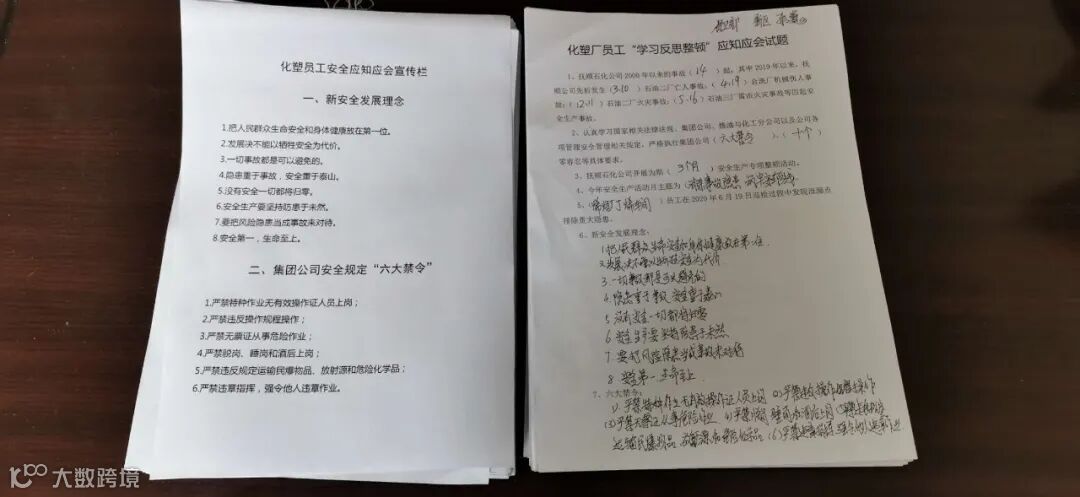 化塑员工安全应知应会宣传栏
一、新安全发展理念
1.把人民群众生命安全和身体健康放在第一位。
2.发展决不能以牺牲安全为代价。
3.一切事故都是可以避免的。
4.隐患重于事故，安全重于泰山。
5.没有安全一切都将归零。
6.安全生产要坚持防患于未然。
7.要把风险隐患当成事故来对待。
8.安全第一，生命至上。
二、集团公司安全规定“六大禁令”
1.严禁特种作业无有效操作证人员上岗；
2.严禁违反操作规程操作；
3.严禁无票证从事危险作业；
4.严禁脱岗、睡岗和酒后上岗；
5.严禁违反规定运输民爆物品、放射源和危险化学品；
6.严禁违章指挥，强令他人违章作业。
化塑厂员工“学习反思整顿”应知应会试题
1、抚顺石化公司2000年以来的事故（14）起，其中2019年以来，抚
顺公司先后发生（3.10）石油二厂亡人事故；（4.19）合洗厂机械伤人事
故；（12.11）石油二厂火灾事故；（5.16）石油三厂雷击火灾事故等四起安
全生产事故。
2、认真学习国家相关法律法规、集团公司、炼油与化工分公司以及公司各
项管理安全管理相关规定，严格执行集团公司（六大禁令）、（十个）
零容忍等具体要求。
3、抚顺石化公司开展为期（3个月）安全生产专项整顿活动。
4、今年安全生产活动月主题为（消除事故隐患 筑牢安全防线）
5、（烯烃厂）员工在2020年6月19日巡检过程中发现泄漏点
排除重大隐患。
6、新安全发展理念：
1.把人民群众生命安全和身体健康放在第一位.
2.发展决不能以牺牲安全为代价
3.一切事故都是可以避免的
4.隐患重于事故，安全重于泰山
5.没有安全一切都将归零
6.安全生产要坚持防患于未然
7.要把风险隐患当成事故来对待
8.安全第一.生命至上.
7、六大禁令：
(1)严禁特种作业无有效操作证人员上岗 (2)严禁违反操作规程操作
(3)严禁无票证从事危险作业 (4)严禁脱岗、睡岗和酒后上岗 (5)严禁违反规定
运输民爆物品、放射源和危险化学品 (6)严禁违章指挥 强令他人违章作业
大数跨境